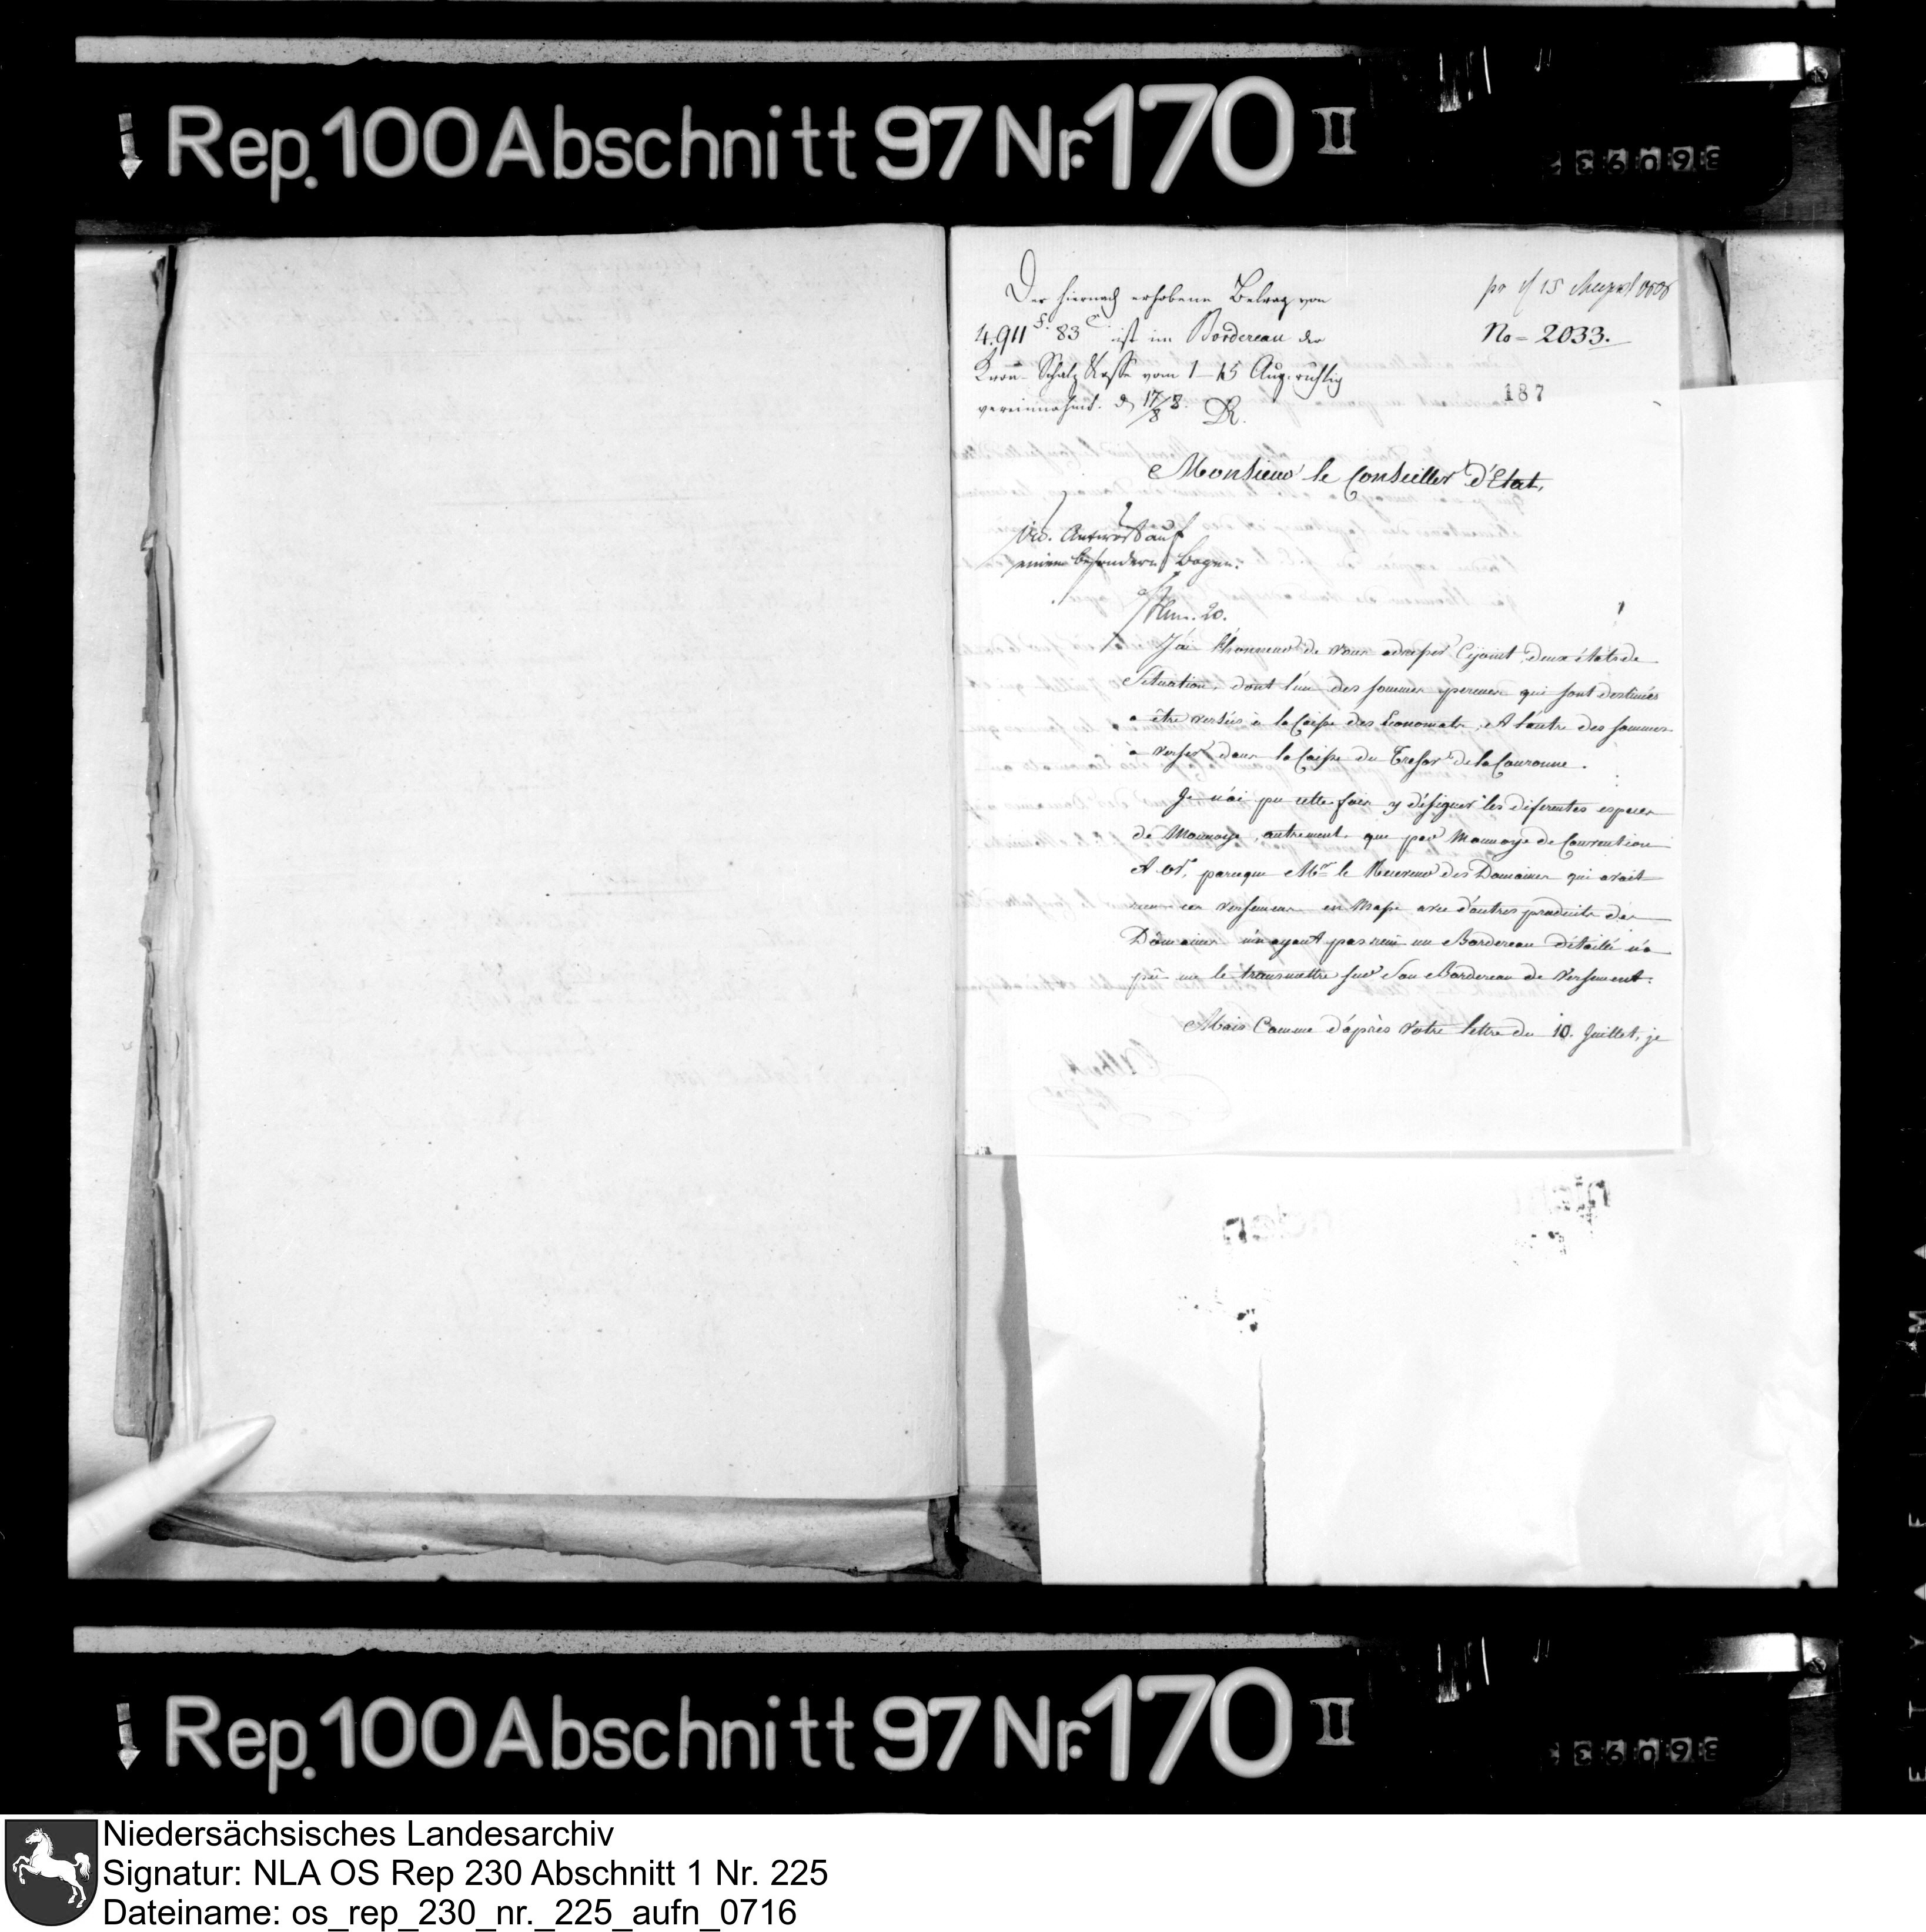 Rep. 100 Abschnitt 97 Nr. 170 II
36093
Der hiernach erhobene Betrag von
4.911 f. 83 c. ist im Bordereau der
Kron-Schatz Kasse vom 1-15 Aug. richtig
vereinnahmt. d 17/8 8. R.
pr. 15 August
No = 2033.
187
Monsieur le Conseiller d'Etat,
Antwort auf
einem besondern Bogen.
Num. 20.
J'ai l'honneur de vous adresser Cyjoint deux états de
Situation, dont l'un des sommes percues qui sont destinées
a être versées à la Caisse des Economats, et l'autre des sommes
a verser dans la Caisse du Tresor de la Couronne.
Je n'ai pu cette fois y désigner les diferentes especes
de Monnoye, autrement, que par Monnoye de Convention
et or, parceque Mr. le Receveur des Domaines qui avait
ces versemens en Masse avec d'autres produits des
Domaines n'ayant pas remi un Bordereau détaillé n'a
pu me le transmettre sur Son Bordereau de Versement.
Mais Comme d'après Votre lettre du 10. Juillet, je
Rep. 100 Abschnitt 97 Nr. 170 II
36093
Niedersächsisches Landesarchiv
Signatur: NLA OS Rep 230 Abschnitt 1 Nr. 225
Dateiname: os_rep_230_nr._225_aufn_0716